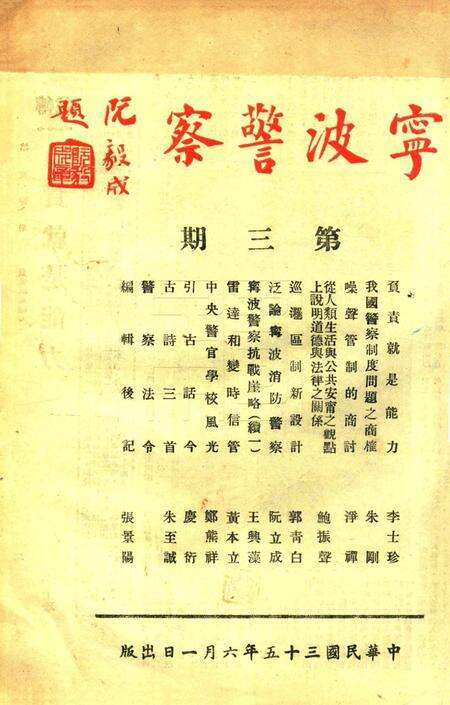 寧波警察
阮毅成
題
第三期
負責就是能力 李士珍
我國警察制度問題之商榷 朱剛
噪聲管制的商討 淨禪
從人類生活與公共安甯之觀點
上說明道德與法律之關係 鮑振聲
巡邏區制新設計 郭青白
泛論寗波消防警察 阮立成
寗波警察抗戰崖略(續一) 王興藻
雷達和變時信管 黃本立
中央警官學校風光 鄭熊祥
引古話今 慶衍
古詩三首 朱至誠
警察法令
編輯後記 張景陽
中華民國三十五年六月一日出版